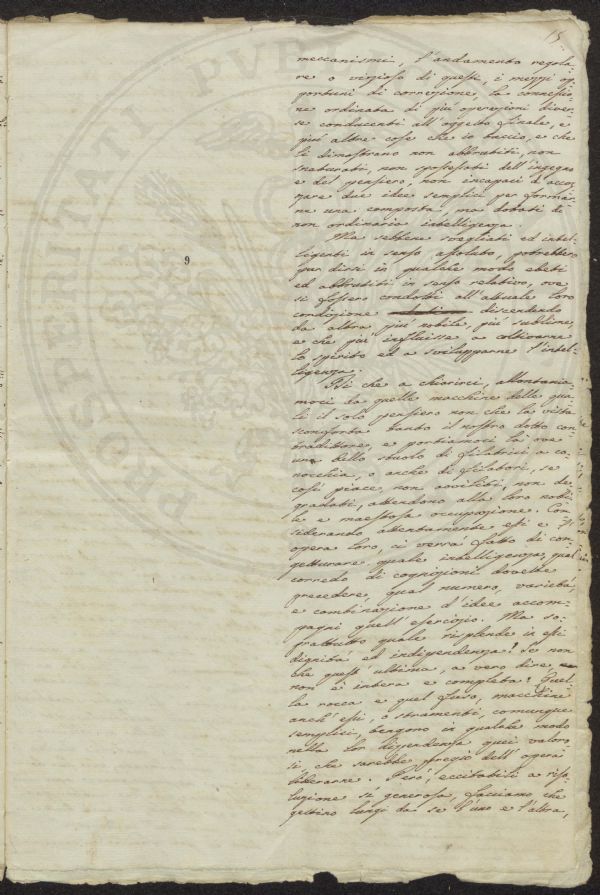 15
meccanismi, l'andamento regola-
re o vizioso di questi, i mezzi op-
portuni di correzione, la connessio-
ne ordinata di più operazioni diver-
se conducenti all'oggetto finale, e
più altre cose che io taccio, e che
li dimostrano non abbrutiti, non
snaturati, non spossessati dell'ingegno
e del pensiero, non incapaci d'accop-
piare due idee semplici per formar-
ne una composta, ma dotati di
non ordinaria intelligenza.
Ma sebbene svegliati ed intel-
ligenti in senso assoluto, potrebbero
pur dirsi in qualche modo ebeti
ed abbrutiti in senso relativo, ove
si fossero condotti all'attuale loro
condizione discendendo
da altra più nobile, più sublime,
e che più influisse a coltivarne
lo spirito ed a svilupparne l'intel-
ligenza.
9
Al che a chiarirci, allontania-
moci da quelle macchine delle qua-
li il solo pensiero non che la vista
sconforta tanto il nostro dotto con-
tradittore, e portiamoci là ove
uno bello stuolo di filatrici a co-
nocchia, o anche di filatori, se
così piace, non avviliti, non de-
gradati, attendono alla loro nobi-
le e maestosa occupazione. Con-
siderando attentamente essi e l'
opera loro, ci verrà fatto di con-
getturare quale intelligenza, qual
corredo di cognizioni dovette
precedere, qual numero, varietà,
e combinazione d'idee accom-
pagni quell'esercizio. Ma so-
prattutto quale risplende in essi
dignità ed indipendenza! Se non
che quest'ultima, a vero dire,
non è intera e completa: Quel-
la rocca e quel fuso, macchine
anch'essi, o stromenti, comunque
semplici, tengono in qualche modo
nella lor dipendenza quei valoro-
si, che sarebbe pregio dell'opera
liberarne. Però, eccitabili a riso-
luzione sì generosa, facciamo che
gettino lungi da sé l'uno e l'altra,
PROSPERITATI PVBL